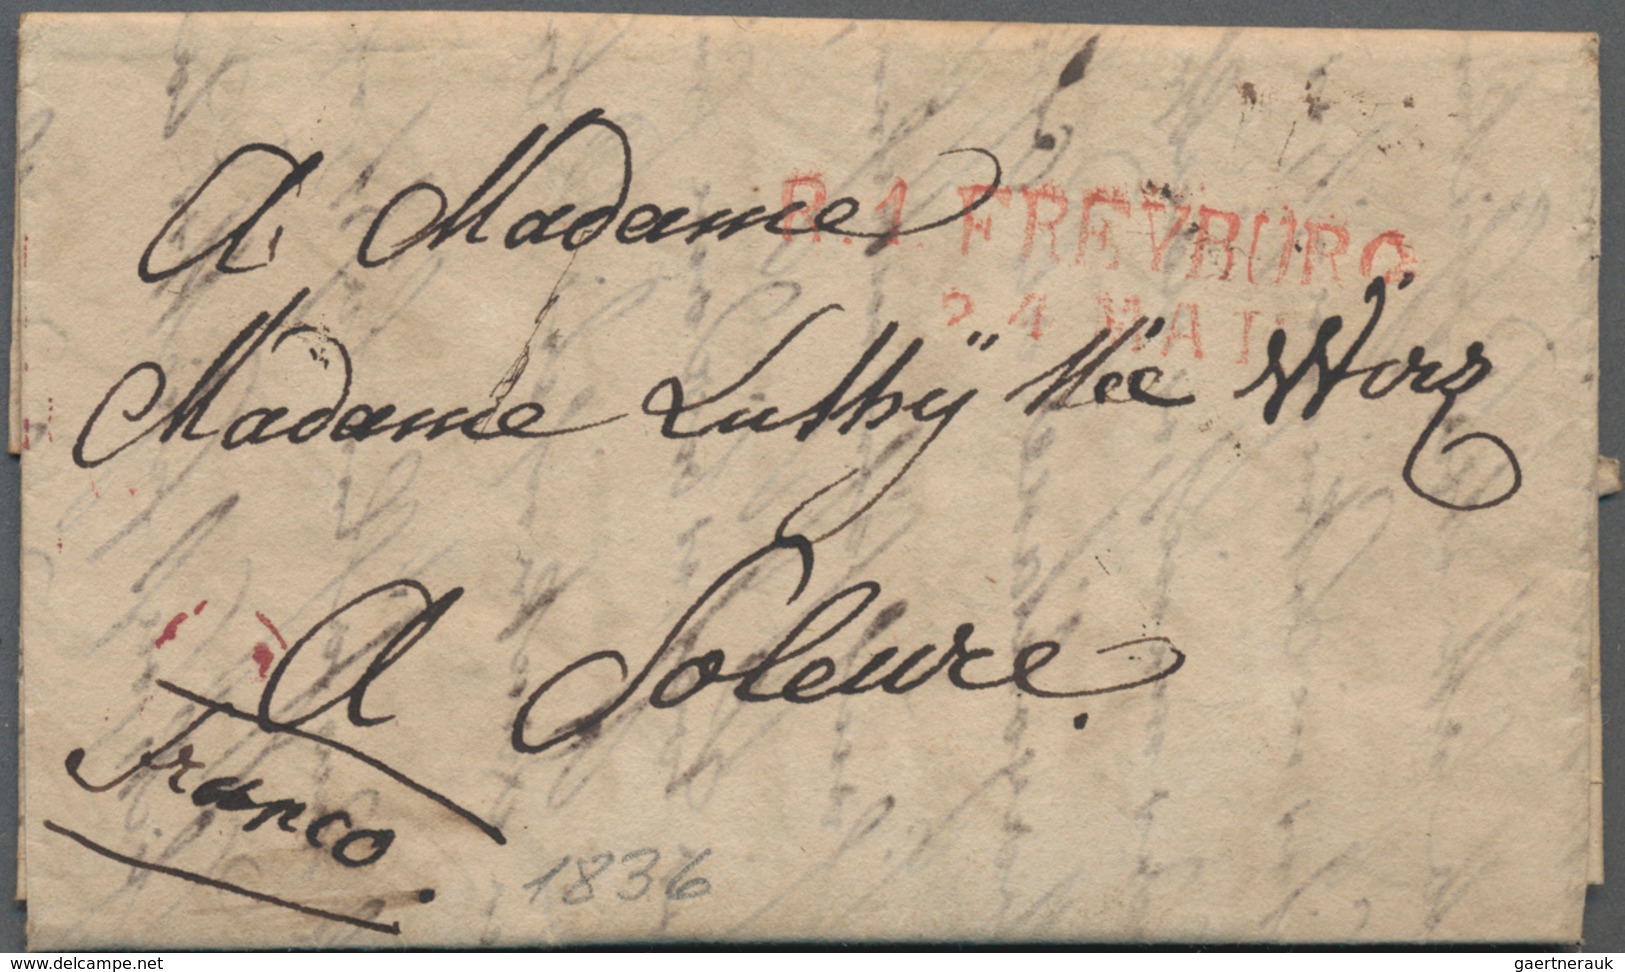 A Madame
R.1. FREYBURG
24 MAI
Madame Luthÿ Née Wirz
A Soleure.
Franco.
1836
delcampe.net
gaertnerauk